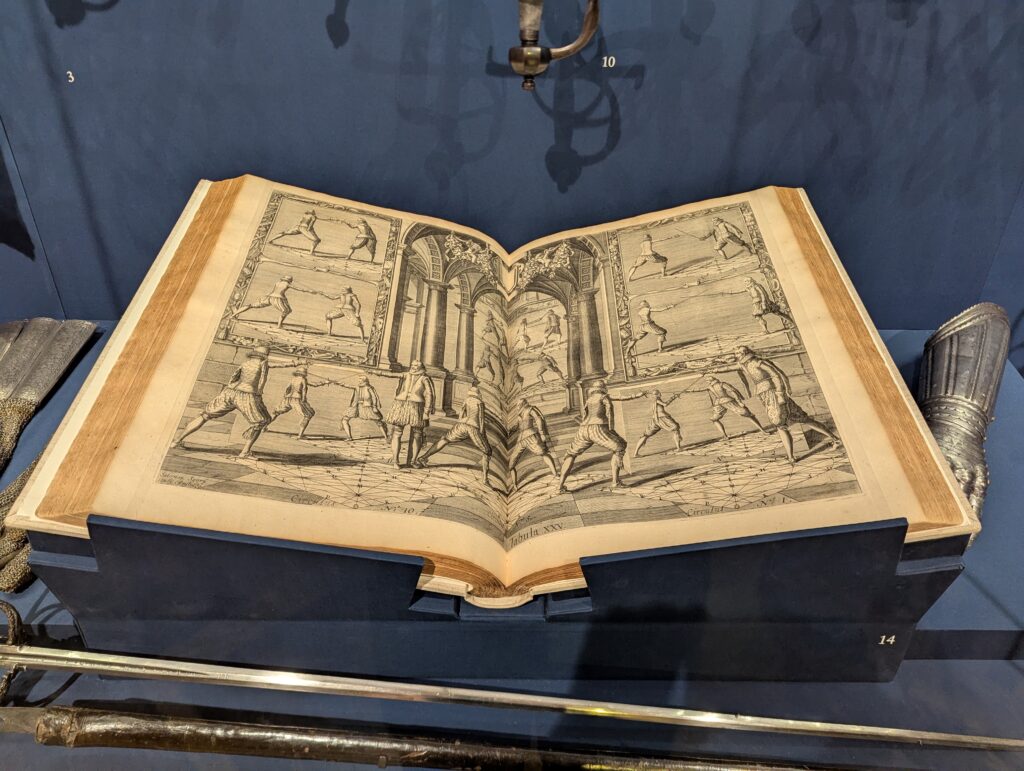 3
10
Circulus
N.º 10.
Tabula XXV
Circulus
N.º 1.
14